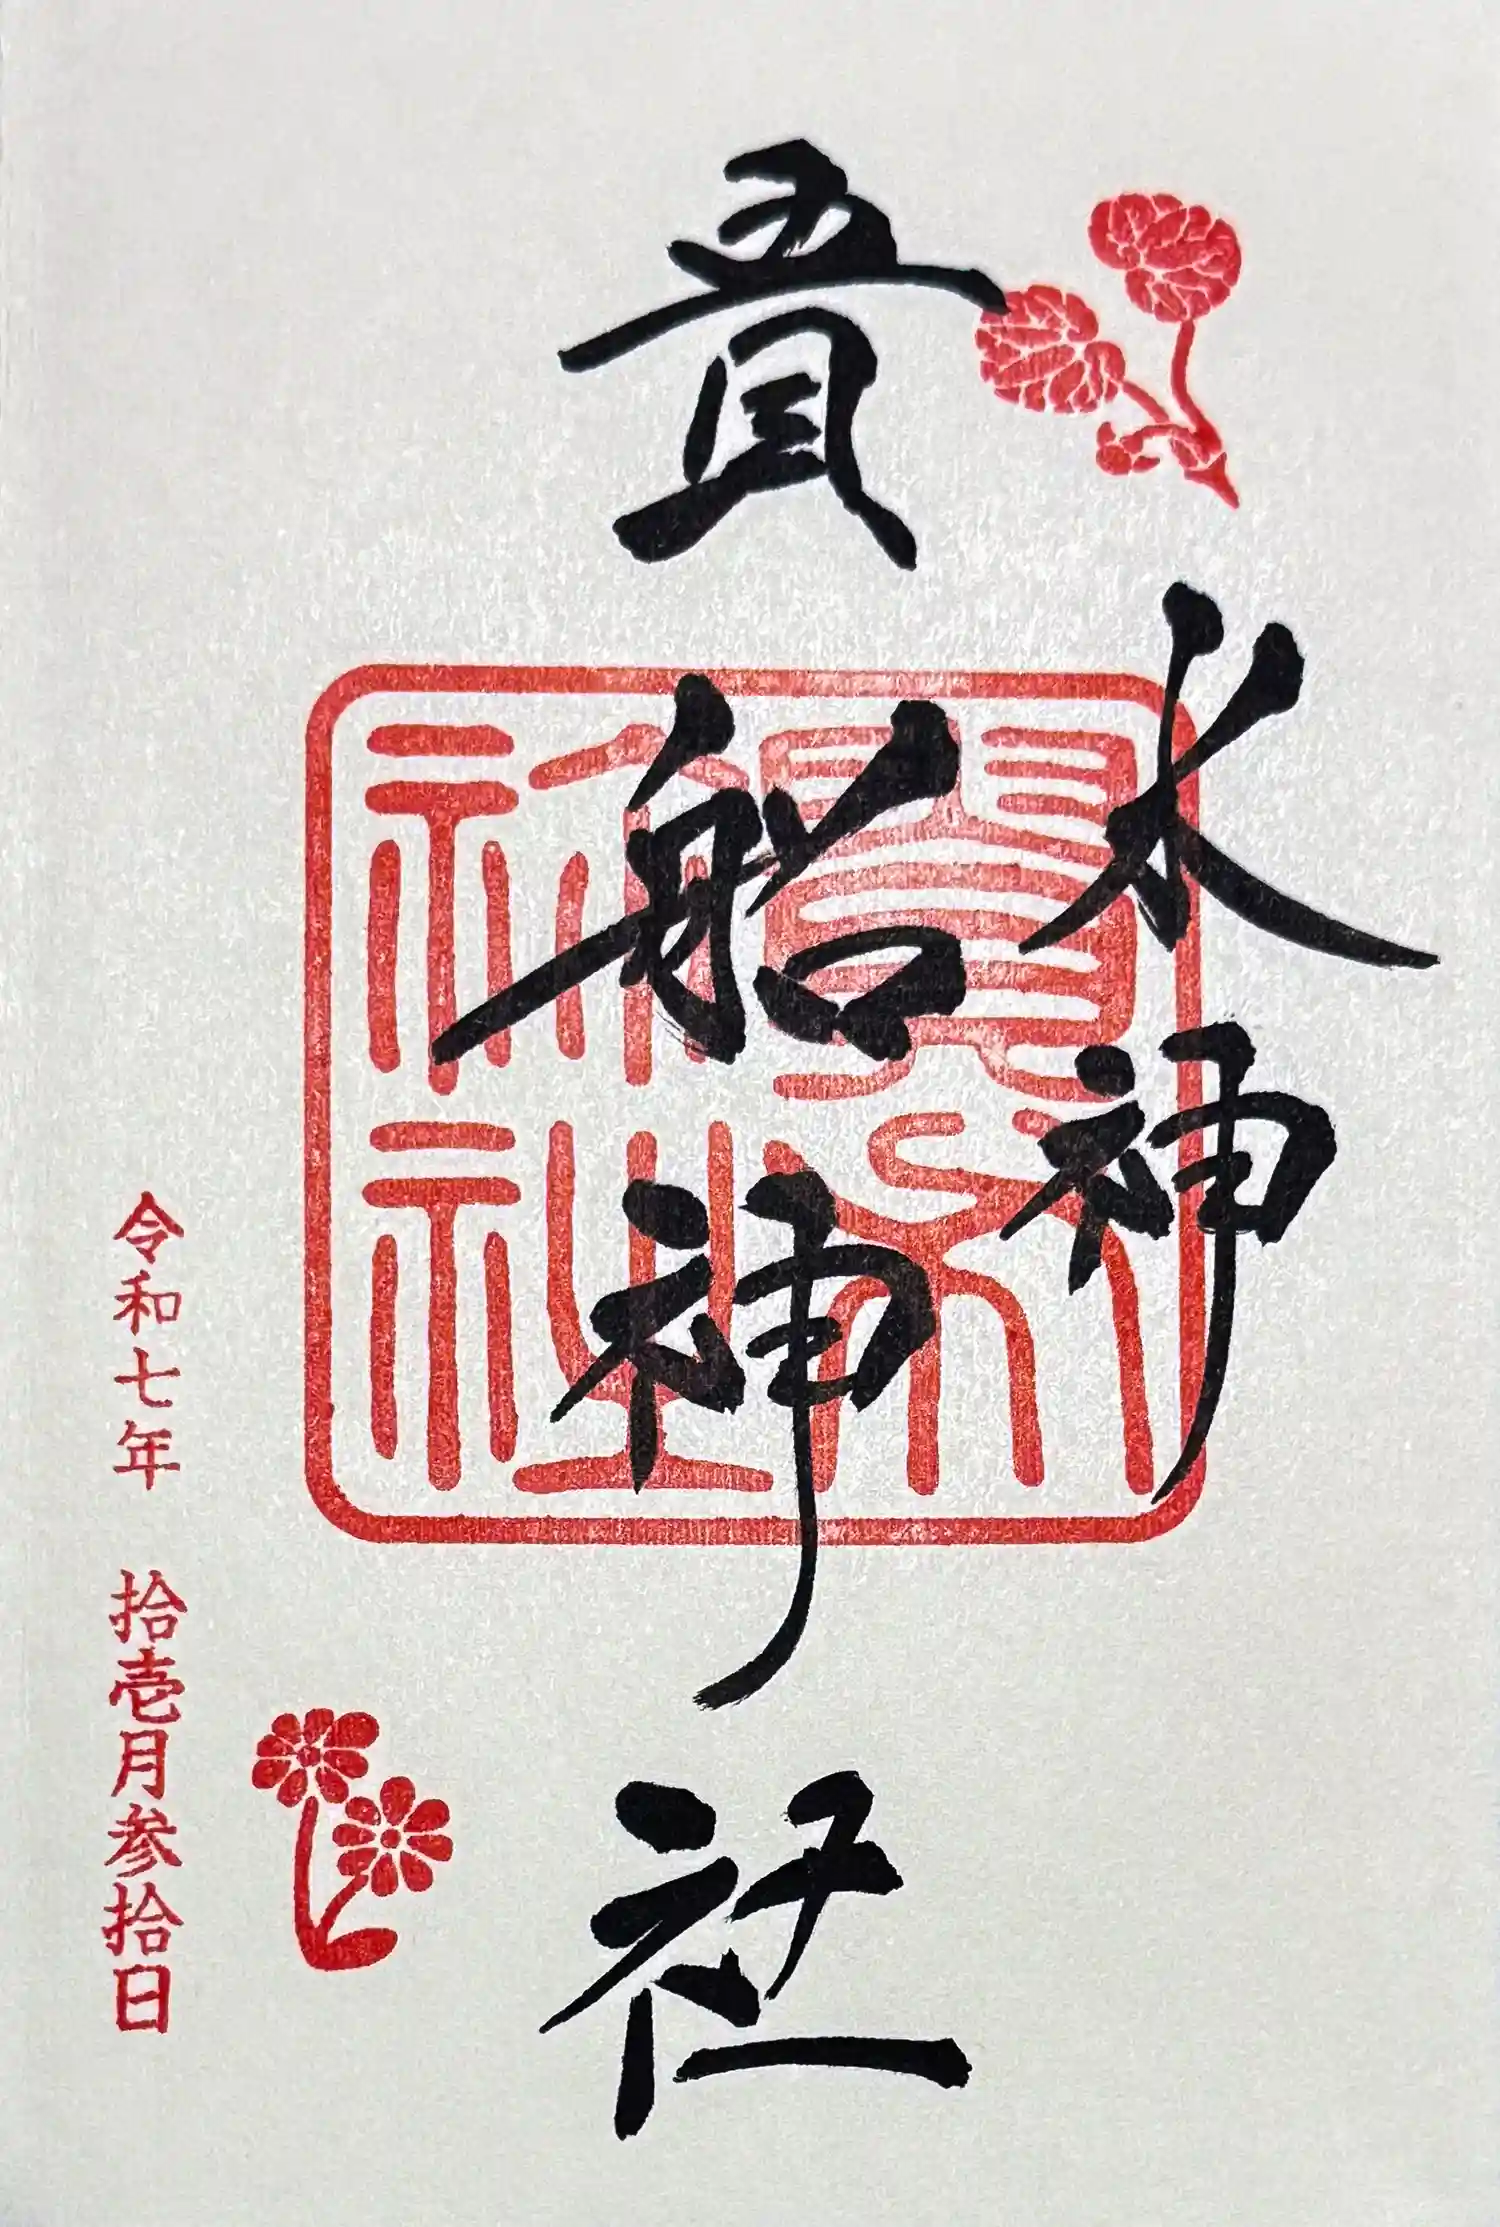 水神
貴船神社
貴布
祢社
令和七年 拾壱月参拾日